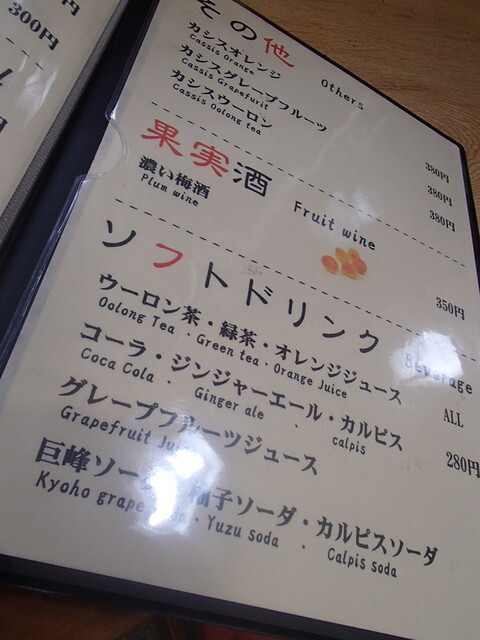 300円
その他 Others
カシスオレンジ 380円
Cassis Orange
カシスグレープフルーツ 380円
Cassis Grapefurit
カシスウーロン 380円
Cassis Oolong tea
果実酒 Fruit wine
濃い梅酒 350円
Plum wine
ソフトドリンク Beverage
ウーロン茶・緑茶・オレンジジュース ALL
Oolong Tea ・Green tea・Orange Juice
コーラ・ジンジャーエール・カルピス 280円
Coca Cola 、 Ginger ale 、 calpis
グレープフルーツジュース
Grapefruit Juice
巨峰ソーダ・柚子ソーダ・カルピスソーダ
Kyoho grape 、Yuzu soda 、 Calpis soda